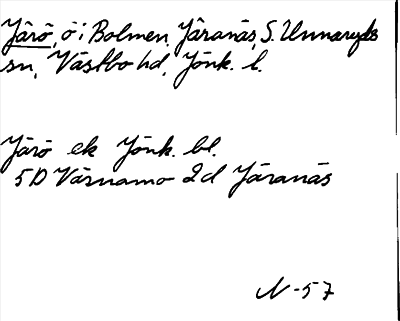 Järö, ö i Bolmen, Järanäs, S. Unnaryds
sn, Västbo hd, Jönk. l.
Järö ek Jönk. bl.
5D Värnamo 2d Järanäs
N-57